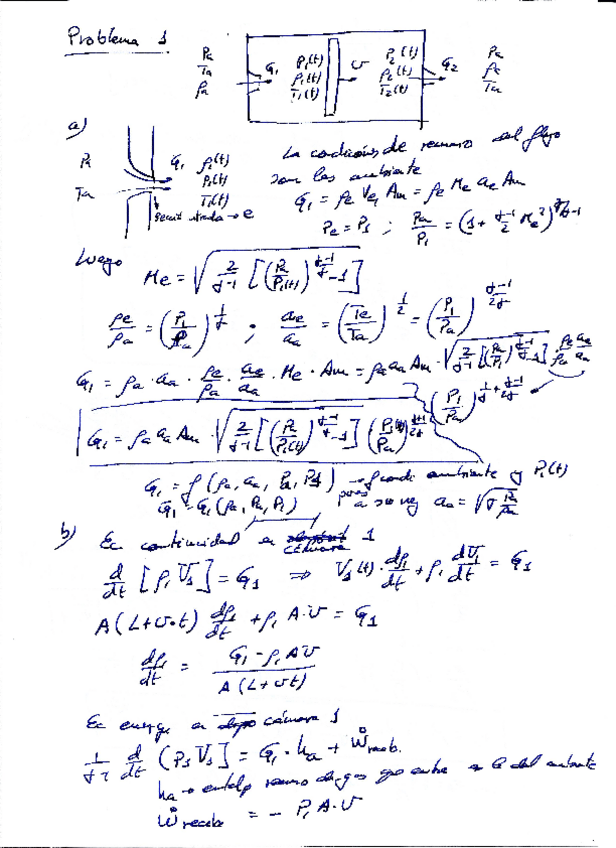 Problema 1
Pa
Ta
ρa
G1
P1(t)
ρ1(t)
T1(t)
v
P2(t)
ρ2(t)
T2(t)
G2
Pa
ρa
Ta
a)
Pa
Ta
G1 ρ1(t)
P1(t)
T1(t)
→ e
La condiciones de remanso del flujo
son las ambiente
G1 = ρe Ve Am = ρe Me ae Am
Pe = P1 ; Pa/P1 = (1 + (γ-1)/2 Me²)^(γ/(γ-1))
Luego
Me = √(2/(γ-1) [(Pa/P1(t))^((γ-1)/γ) - 1])
ρe/ρa = (P1/Pa)^(1/γ) ; ae/aa = (Te/Ta)^(1/2) = (P1/Pa)^((γ-1)/2γ)
G1 = ρa · aa · ρe/ρa · ae/aa · Me · Am = ρa aa Am · √(2/(γ-1) [(Pa/P1)^((γ-1)/γ) - 1] · ρe/ρa ae/aa
(P1/Pa)^(1/γ + (γ-1)/2γ)
G1 = ρa aa Am · √(2/(γ-1) [(Pa/P1(t))^((γ-1)/γ) - 1]) (P1(t)/Pa)^((γ+1)/2γ)
G1 = f(ρa, aa, Pa, P1) → ambiente y P1(t)
G1 = G1(ρa, Pa, P1) pues a su vez aa = √(γ Pa/ρa)
b) Ec continuidad en cámara 1
d/dt [ρ1 V1] = G1 ⇒ V1(t) · dρ1/dt + ρ1 dV1/dt = G1
A(L + v·t) dρ1/dt + ρ1 A·v = G1
dρ1/dt = (G1 - ρ1 A v)/(A(L + vt))
Ec energ en cámara 1
1/(γ-1) d/dt (P1 V1) = G1 · ha + Ẇrecib.
ha → entalp remanso del gas que entra es la del ambiente
Ẇrecibe = - P1 A · v